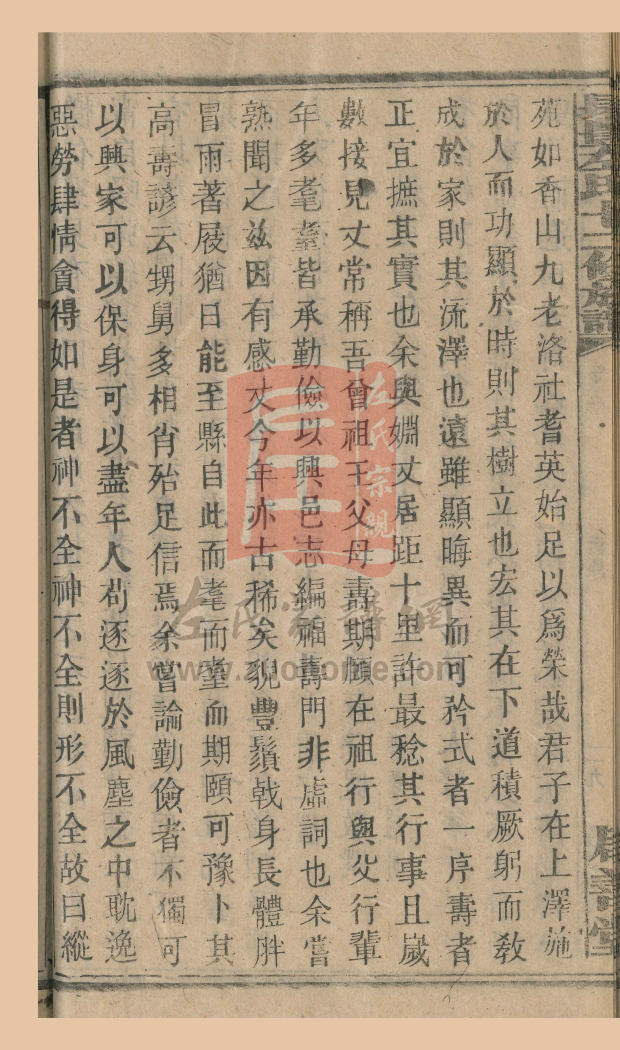 苑如香山九老洛社耆英始足以爲榮哉君子在上澤施
於人而功顯於時則其樹立也宏其在下道積厥躬而敎
成於家則其流澤也遠雖顯晦異而可矜式者一序壽者
正宜摭其實也余與婣丈居距十里許最稔其行事且歲
數接見丈常稱吾曾祖王父母壽期頤在祖行與父行輩
年多耄耋皆承勤儉以興邑志編福壽門非虛詞也余嘗
熟聞之玆因有感丈今年亦古稀矣貌豐鬚戟身長體胖
冒雨著屐猶日能至縣自此而耄而耋而期頤可豫卜其
高壽諺云甥舅多相肖殆足信焉余嘗論勤儉者不獨可
以興家可以保身可以盡年人苟逐逐於風塵之中耽逸
惡勞肆情貪得如是者神不全神不全則形不全故曰縱
左氏宗親
左氏宗譜網
www.zuohome.com